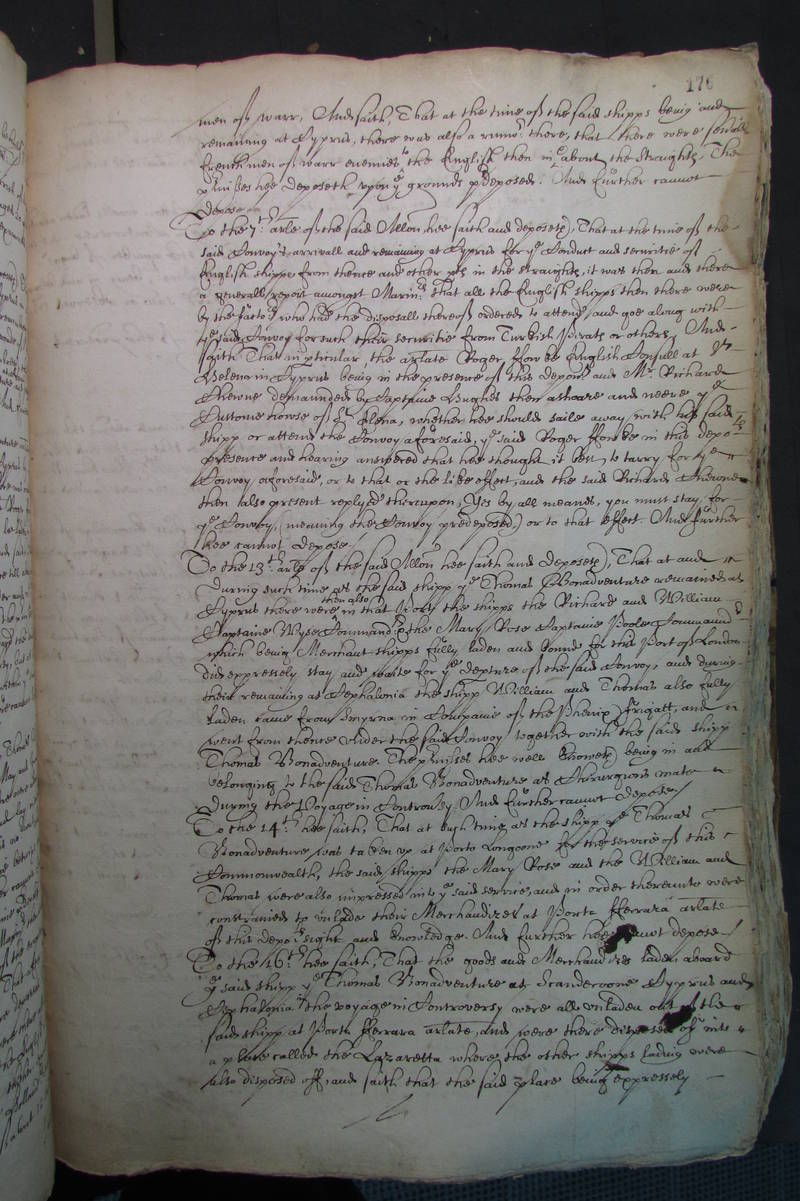 176
men of warr, And saith, That at the time of the said shipps being and
remaining at Cyprus, there was also a rumor there, that there were severall
French men of warr enemies to the English then in ye about the Straights, The
p'misses hee deposeth upon ye grounds predeposed. And further cannot
depose
To the 7th. arle of the said Allon hee saith and deposeth, That at the time of the
said Convoy's arrivall and remaining at Cyprus for ye Conduct and securitie of
English shipps from thence and other pts in the straights, it was then and there
a generall report amongst Marinrs that all the English shipps then there were
by the factors who had the disposall thereof ordered to attend, and goe along with
ye said Convoy for such their securitie from Turkish Pirats or others, And
saith That in p'ticular, the arlate Roger ffowke English Consull at St
Helena in Cyprus being in the presence of this deponent and Mr. Richard
Chewne demaunded by Captaine Hughes then ashoare and neere ye
Custome howse of St Elena, whether hee should saile away with his said
shipp or attend the Convoy aforesaid, ye said Roger ffowke in this depots
presence and hearing answered that hee thought it best to tarry for ye
Convoy aforesaid, or to that or the like effect, and the said Richard Chewne
then also present replyed thereupon, Yes by all meanes, you must stay for
ye Convoy, (meaning the Convoy predeposed) or to that effect And further
hee cannot depose
To the 13th. arle of the said Allon hee saith and deposeth, That at and
during such time as the said shipp ye Thomas Bonadventure remained at
Cyprus there were then also in that Port the shipps the Richard and William
Captaine Wyse Command:r the Mary Rose Captaine Poole Commaundr
which being Merchant shipps fully laden and bound for this Port of London
did expressely stay and waite for ye depture of the said Convoy, and during
their remaining at Cephalonia the shipp William and Thomas also fully
laden came from Smyrna in Companie of the Phenix ffrigatt, and
went from thence under the said Convoy together with the said shipp
Thomas Bonadventure. The p'misses hee well knoweth being in and
belonging to the said Thomas Bonadventure as Chirurgions mate
during the Voyage in Controversy. And further cannot depose
To the 14th. hee saith, That at such time as the shipp ye Thomas
Bonadventure was taken up at Porto Longone for the service of this
Commonwealth, the said shipps the Mary Rose and the William and
Thomas were also impressed into ye said service, and in order thereunto were
constrained to unlade their Merchandizes at Porto fferrara arlate
of this depots sight and knowledge. And further hee cannot depose
To the 16th. hee saith, That the goods and Merchandizes laden aboard
ye said shipp ye Thomas Bonadventure at Scanderoone Cyprus and
Cephalonia the voyage in Controversy were all unladen out of the
said shipp at Porto fferrara arlate, and were there disposed of into
a place called the Lazaretta where the other shipps lading were
also disposed off, and saith that the said place being expressely